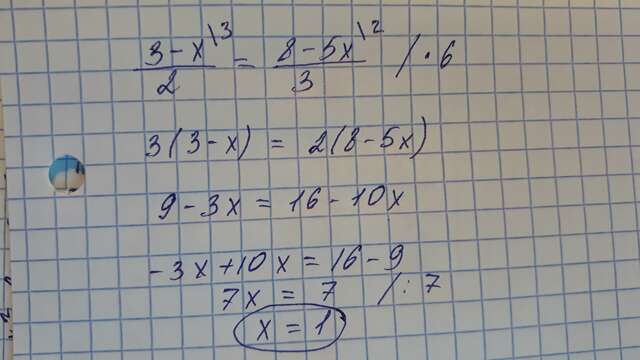 3-x\3 / 2 = 8-5x\2 / 3 /·6
3(3-x) = 2(8-5x)
9-3x = 16-10x
-3x+10x = 16-9
7x = 7 /:7
x = 1